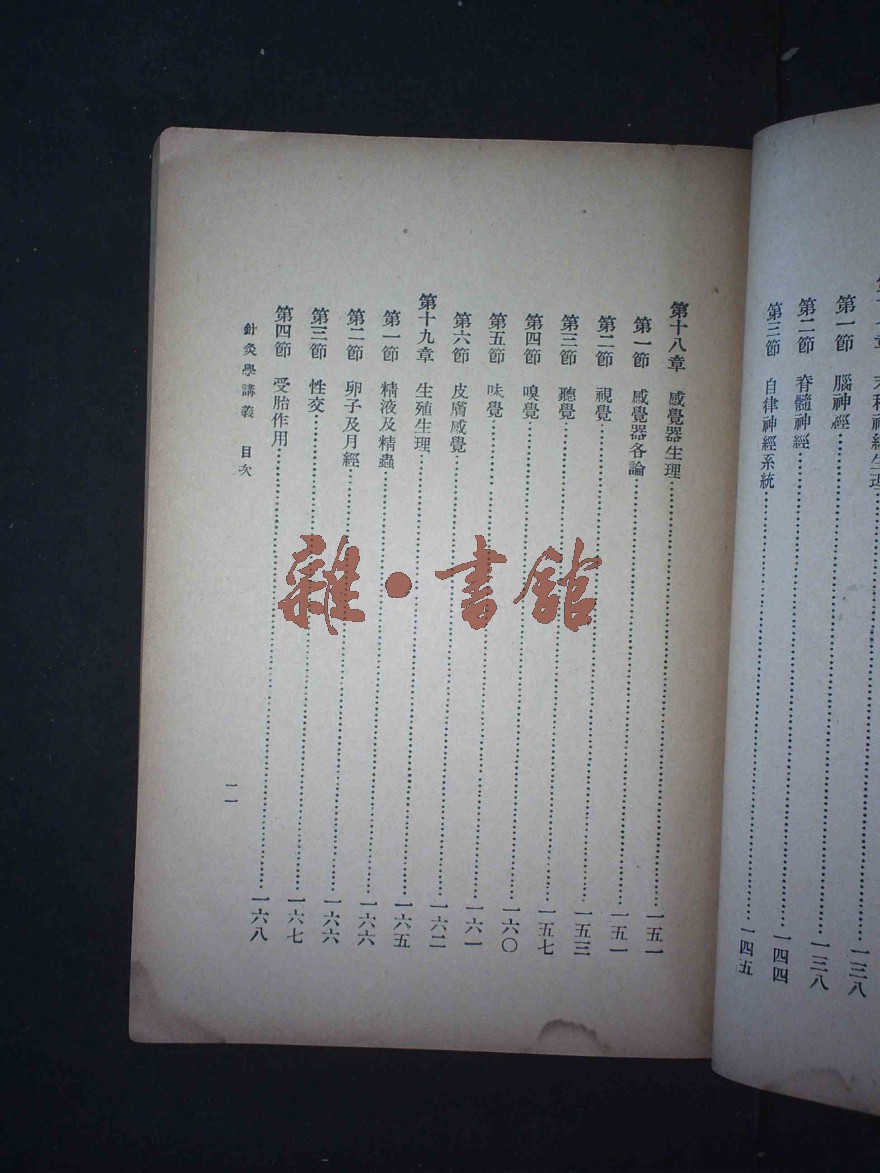 章 末梢神經生理……一三八
第一節 腦神經……一三八
第二節 脊髓神經……一四四
第三節 自律神經系統……一四五
第十八章 感覺器生理……一五一
第一節 感覺器各論……一五一
第二節 視覺……一五三
第三節 聽覺……一五七
第四節 嗅覺……一六〇
第五節 味覺……一六一
第六節 皮膚感覺……一六二
第十九章 生殖生理……一六五
第一節 精液及精蟲……一六六
第二節 卵子及月經……一六六
第三節 性交……一六七
第四節 受胎作用……一六八
針灸學講義 目次 一一
雜·書館